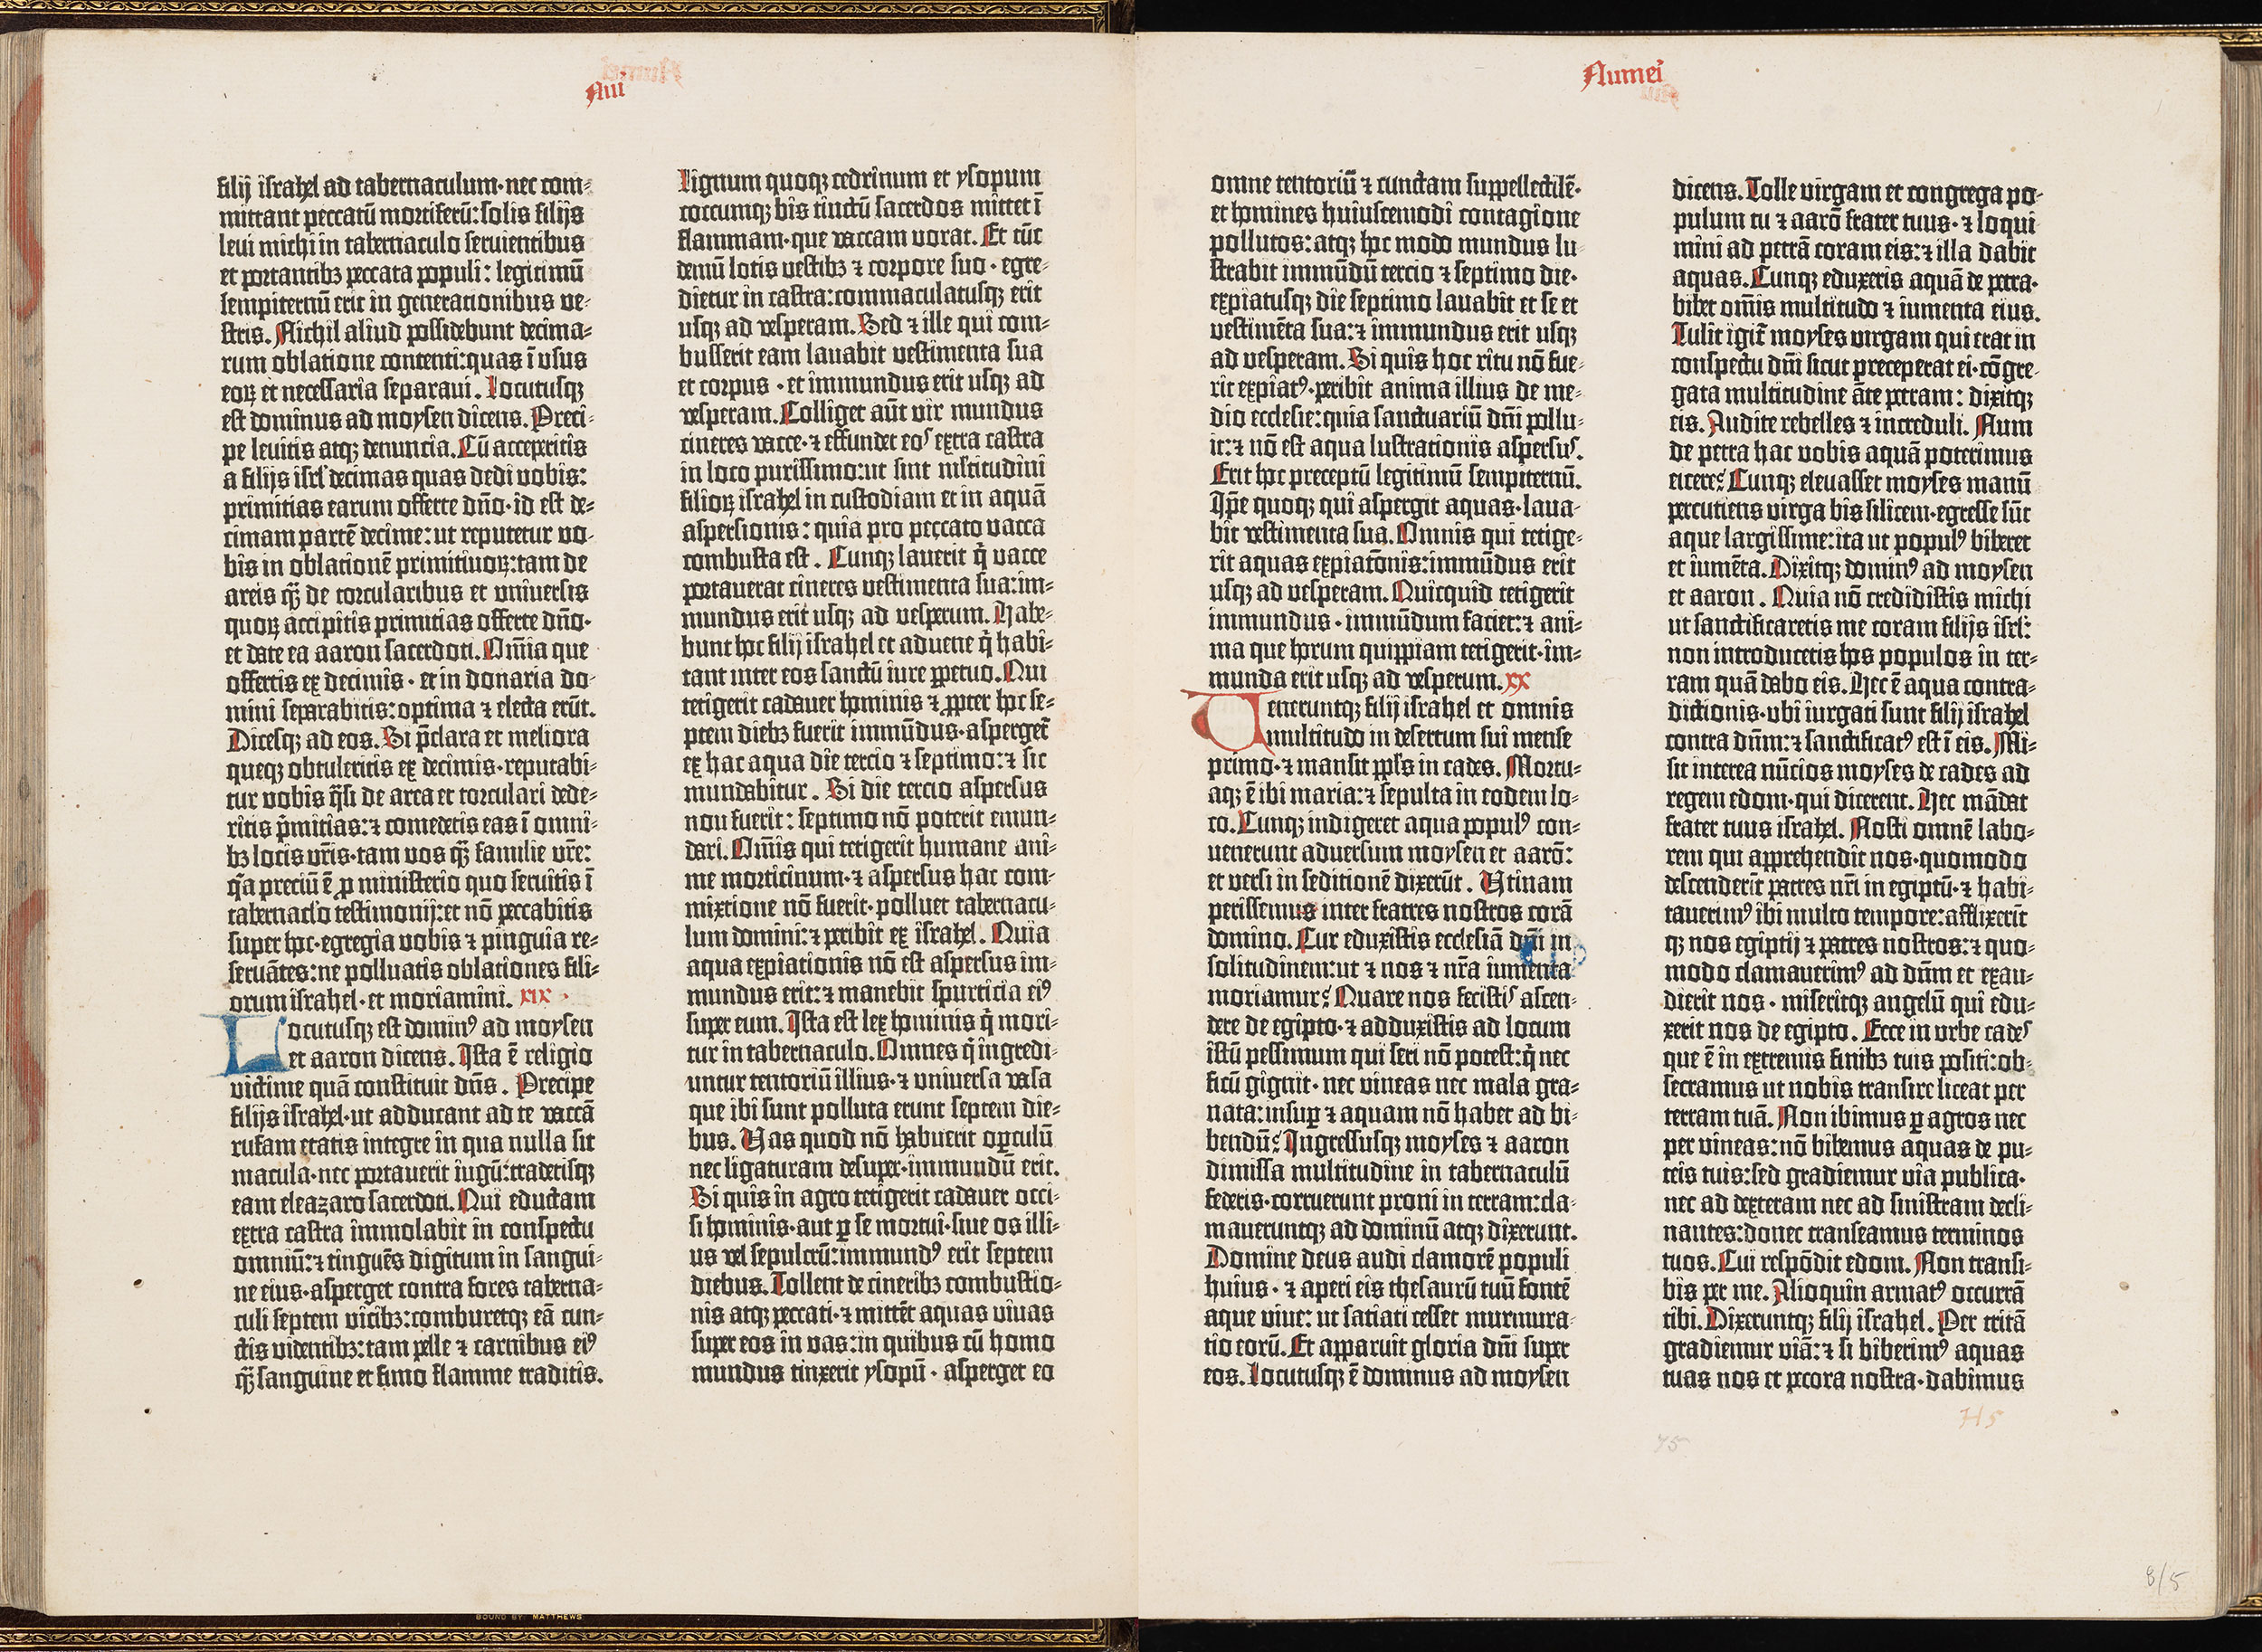 Nui
filij israhel ad tabernaculum·nec com-
mittant peccatū mortiferū: solis filijs
leui michi in tabernaculo seruientibus
et portantibꝫ peccata populi: legitimū
sempiternū erit in generationibus ve-
stris. Nichil aliud possidebunt decima-
rum oblatione contenti: quas ī usus
eoꝝ et necessaria separaui. Locutusqꝫ
est dominus ad moysen dicens. Preci-
pe leuitis atqꝫ denuncia. Cū acceperitis
a filijs isrl' decimas quas dedi vobis:
primitias earum offerte dño·id est de-
cimam partē decime: ut reputetur vo-
bis in oblationē primitiuoꝝ: tam de
areis q̄ʒ de torcularibus et vniuersis
quoꝝ accipitis primitias offerte dño·
et date ea aaron sacerdoti. Om̄ia que
offertis ex decimis·et in donaria do-
mini separabitis: optima ⁊ electa erūt.
Dicesqꝫ ad eos. Si p̄clara et meliora
queqꝫ obtuleritis ex decimis·reputabi-
tur vobis q̄si de area et torculari dede-
ritis p̄mitias: ⁊ comedetis eas ī omni-
bꝫ locis vr̄is·tam vos q̄ʒ familie vr̄e:
q̄a preciū ē ꝓ ministerio quo seruitis ī
tabernac̄lo testimonij: et nō peccabitis
super hoc·egregia vobis ⁊ pinguia re-
seruātes: ne polluatis oblationes fili-
orum israhel·et moriamini. xix·
Locutusqꝫ est dominꝰ ad moysen
et aaron dicens. Ista ē religio
victime quā constituit dñs. Precipe
filijs israhel·ut adducant ad te vaccā
rufam etatis integre in qua nulla sit
macula·nec portauerit iugū: tradetisqꝫ
eam eleazaro sacerdoti. Qui eductam
extra castra immolabit in conspectu
omniū: ⁊ tinguēs digitum in sangui-
ne eius·asperget contra fores taberna-
culi septem vicibꝫ: comburetqꝫ eā cun-
ctis videntibꝫ: tam pelle ⁊ carnibus eiꝰ
q̄ʒ sanguine et fimo flamme traditis.
Lignum quoqꝫ cedrinum et ysopum
coccumqꝫ bis tinctū sacerdos mittet ī
flammam·que vaccam vorat. Et tūc
demū lotis vestibꝫ ⁊ corpore suo·egre-
dietur in castra: commaculatusqꝫ erit
usqꝫ ad vesperam. Sed ⁊ ille qui com-
busserit eam lauabit vestimenta sua
et corpus·et immundus erit usqꝫ ad
vesperam. Colliget aūt vir mundus
cineres vacce·⁊ effundet eos extra castra
in loco purissimo: ut sint ml̄titudini
filioꝝ israhel in custodiam et in aquā
aspersionis: quia pro peccato vacca
combusta est. Cunqꝫ lauerit q̄ vacce
portauerat cineres vestimenta sua: im-
mundus erit usqꝫ ad vesperum. Habe-
bunt hoc filij israhel et aduene q̄ habi-
tant inter eos sanctū iure ꝑpetuo. Qui
tetigerit cadauer hominis ⁊ ꝓpter hoc se-
ptem diebꝫ fuerit immūdus·asperget̄
ex hac aqua die tercio ⁊ septimo: ⁊ sic
mundabitur. Si die tercio aspersus
non fuerit: septimo nō poterit emun-
dari. Om̄is qui tetigerit humane ani-
me morticinum·⁊ aspersus hac com-
mixtione nō fuerit·polluet tabernacu-
lum domini: ⁊ peribit ex israhel. Quia
aqua expiationis nō est aspersus im-
mundus erit: ⁊ manebit spurticia eiꝰ
super eum. Ista est lex hominis q̄ mori-
tur in tabernaculo. Omnes q̄ ingredi-
untur tentoriū illius·⁊ vniuersa vasa
que ibi sunt polluta erunt septem die-
bus. Vas quod nō habuerit oꝑculū
nec ligaturam desuper·immundū erit.
Si quis in agro tetigerit cadauer occi-
si hominis·aut ꝑ se mortui·siue os illi-
us vel sepulcrū: immundꝰ erit septem
diebus. Tollent de cineribꝫ combustio-
nis atqꝫ peccati·⁊ mittēt aquas viuas
super eos in vas: in quibus cū homo
mundus tinxerit ysopū·asperget eo
Numei
omne tentoriū ⁊ cunctam suppellectilē·
et homines huiuscemodi contagione
pollutos: atqꝫ hoc modo mundus lu-
strabit immūdū tercio ⁊ septimo die·
expiatusqꝫ die septimo lauabit et se et
vestimēta sua: ⁊ immundus erit usqꝫ
ad vesperam. Si quis hoc ritu nō fue-
rit expiatꝰ·peribit anima illius de me-
dio ecclesie: quia sanctuariū dñi pollu-
it: ⁊ nō est aqua lustrationis aspersus.
Erit hoc preceptū legitimū sempiternū.
Ip̄e quoqꝫ qui aspergit aquas·laua-
bit vestimenta sua. Omnis qui tetige-
rit aquas expiatōnis: immūdus erit
usqꝫ ad vesperam. Quicquid tetigerit
immundus·immūdum faciet: ⁊ ani-
ma que horum quippiam tetigerit·im-
munda erit usqꝫ ad vesperum. xx
Veneruntqꝫ filij israhel et omnis
multitudo in desertum sin mense
primo·⁊ mansit ppl̄s in cades. Mortu-
aqꝫ ē ibi maria: ⁊ sepulta in eodem lo-
co. Cunqꝫ indigeret aqua populꝰ con-
uenerunt aduersum moysen et aarō:
et versi in seditionē dixerūt. Utinam
perissemus inter fratres nostros corā
domino. Cur eduxistis ecclesiā dñi in
solitudinem: ut ⁊ nos ⁊ nr̄a iumenta
moriamur? Quare nos fecistis ascen-
dere de egipto·⁊ adduxistis ad locum
istū pessimum qui seri nō potest: q̄ nec
ficū gignit·nec vineas nec mala gra-
nata: insuꝑ ⁊ aquam nō habet ad bi-
bendū? Ingressusqꝫ moyses ⁊ aaron
dimissa multitudine in tabernaculū
federis·corruerunt proni in terram: cla-
maueruntqꝫ ad dominū atqꝫ dixerunt.
Domine deus audi clamorē populi
huius·⁊ aperi eis thesaurū tuū fontē
aque viue: ut satiati cesset murmura-
tio eorū. Et apparuit gloria dñi super
eos. Locutusqꝫ ē dominus ad moysen
dicens. Tolle virgam et congrega po-
pulum tu ⁊ aarō frater tuus·⁊ loqui
mini ad petrā coram eis: ⁊ illa dabit
aquas. Cunqꝫ eduxeris aquā de petra·
bibet om̄is multitudo ⁊ iumenta eius.
Tulit igit̄ moyses virgam qui erat in
conspectu dñi sicut preceperat ei·cōgre-
gata multitudine āte petram: dixitqꝫ
eis. Audite rebelles ⁊ increduli. Num
de petra hac vobis aquā poterimus
eicere? Cunqꝫ eleuasset moyses manū
percutiens virga bis silicem·egresse sūt
aque largissime: ita ut populꝰ biberet
et iumēta. Dixitqꝫ dominꝰ ad moysen
et aaron. Quia nō credidistis michi
ut sanctificaretis me coram filijs isrl:
non introducetis hos populos in ter-
ram quā dabo eis. Hec ē aqua contra-
dictionis·ubi iurgati sunt filij israhel
contra dñm: ⁊ sanctificatꝰ est ī eis. Mi-
sit interea nūcios moyses de cades ad
regem edom·qui dicerent. Hec mādat
frater tuus israhel. Nosti omnē labo-
rem qui apprehendit nos·quomodo
descenderit patres nr̄i in egiptū·⁊ habi-
tauerimꝰ ibi multo tempore: afflixerīt
qꝫ nos egiptij ⁊ patres nostros: ⁊ quo-
modo clamauerimꝰ ad dñm et exau-
dierit nos·miseritqꝫ angelū qui edu-
xerit nos de egipto. Ecce in vrbe cades
que ē in extremis finibꝫ tuis positi: ob-
secramus ut nobis transire liceat per
terram tuā. Non ibimus ꝑ agros nec
per vineas: nō bibemus aquas de pu-
teis tuis: sed gradiemur via publica·
nec ad dexteram nec ad sinistram decli-
nantes: donec transeamus terminos
tuos. Cui respōdit edom. Non transi-
bis per me. Alioquin armatꝰ occurrā
tibi. Dixeruntqꝫ filij israhel. Per tritā
gradiemur viā: ⁊ si biberimꝰ aquas
tuas nos et pecora nostra·dabimus
H5
75
8/5
BOUND BY MATTHEWS